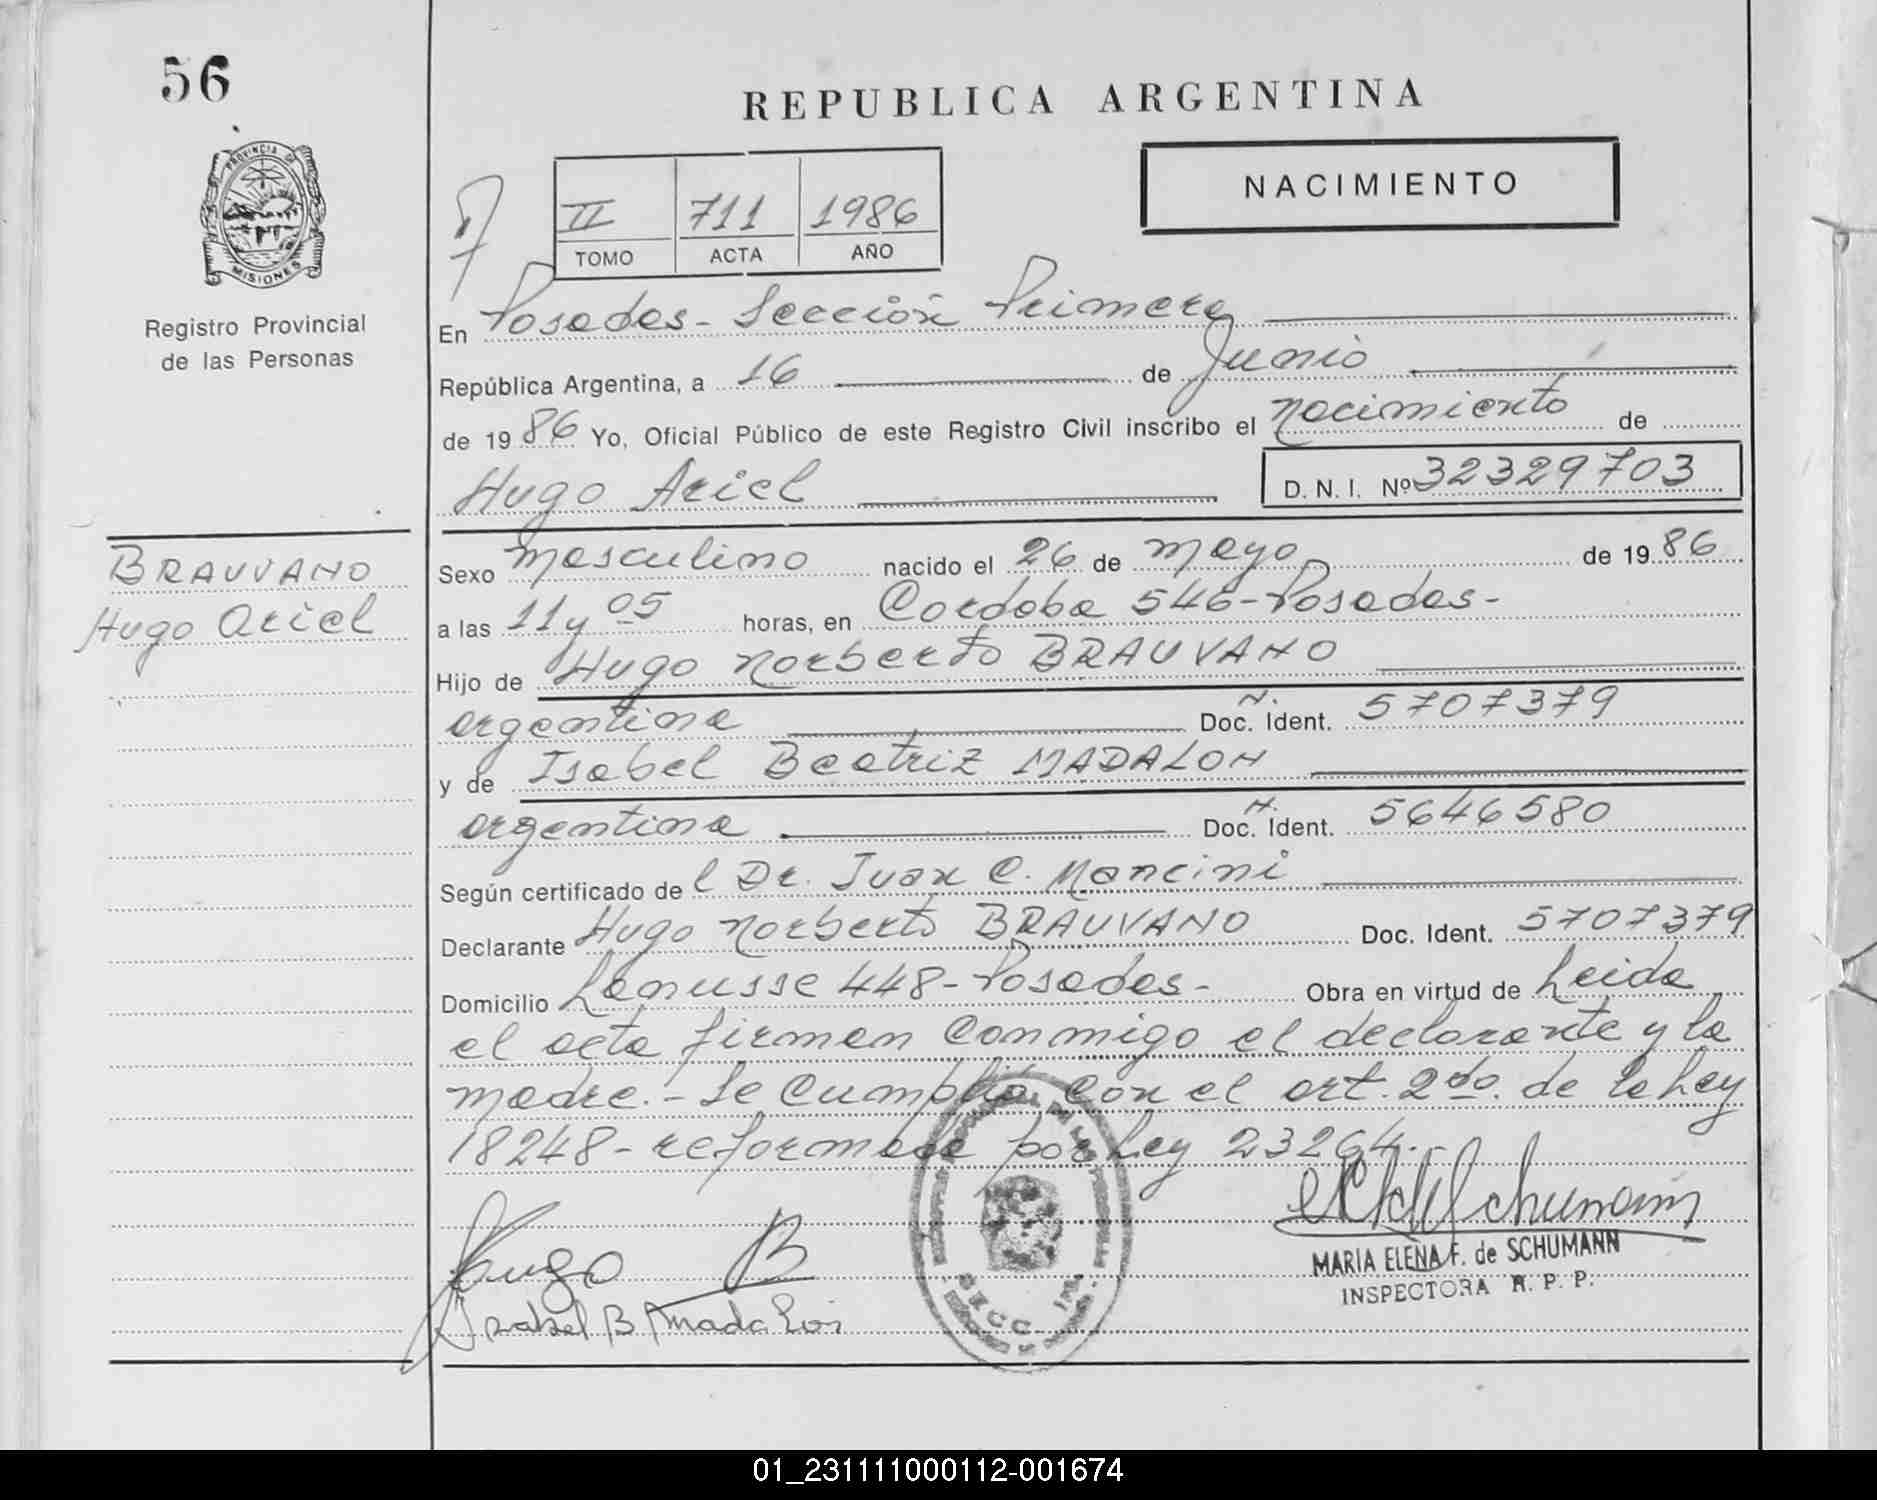 56
REPUBLICA ARGENTINA
PROVINCIA DE
MISIONES
Registro Provincial
de las Personas
II 711 1986
TOMO ACTA AÑO
NACIMIENTO
En Posadas - Sección Primera
República Argentina, a 16 de Junio
de 1986 Yo, Oficial Público de este Registro Civil inscribo el nacimiento de
Hugo Ariel D. N. I. Nº 32329703
BRAUVANO
Hugo Ariel
Sexo masculino nacido el 26 de mayo de 1986
a las 11 y 05 horas, en Cordoba 546 - Posadas -
Hijo de Hugo Norberto BRAUVANO
argentina Doc. Ident. 5707379
y de Isabel Beatriz MADALON
argentina Doc. Ident. 5646580
Según certificado de l Dr. Juan C. Mancini
Declarante Hugo Norberto BRAUVANO Doc. Ident. 5707379
Domicilio Lanusse 448 - Posadas - Obra en virtud de Leida
el acta firman conmigo el declarante y la
madre. - Se cumplió con el art. 2do. de la Ley
18248 - reformada por Ley 23264.-
Hugo B
Isabel B Madalon
Schumann
MARIA ELENA F. de SCHUMANN
INSPECTORA R. P. P.
SECC. 1ra.
01_231111000112-001674